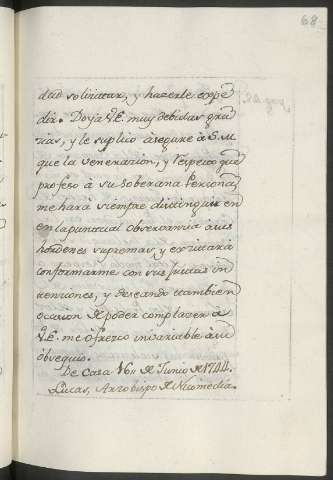 68
dad solicitar, y hazerle expe
dir. Doy à V.E. muy debidas gra
zias, y le suplico àsegure à S.M
que la veneracion, y respeto que
profeso à su soberana Persona,
me harà siempre distinguir en
en la puntual observancia à sus
hordenes supremas, y
conformarme con sus Justas in
tenciones, y deseando tambien
ocasion de poder complazer à
V.E. me òfrezco invariable à su
òbsequio.
De Casa 16 de Junio de 1744.
Lucas, Arzobispo de Nicomedia.